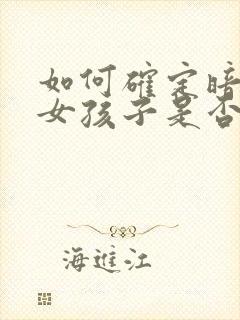 如何確定暗
女孩子是否
海進江